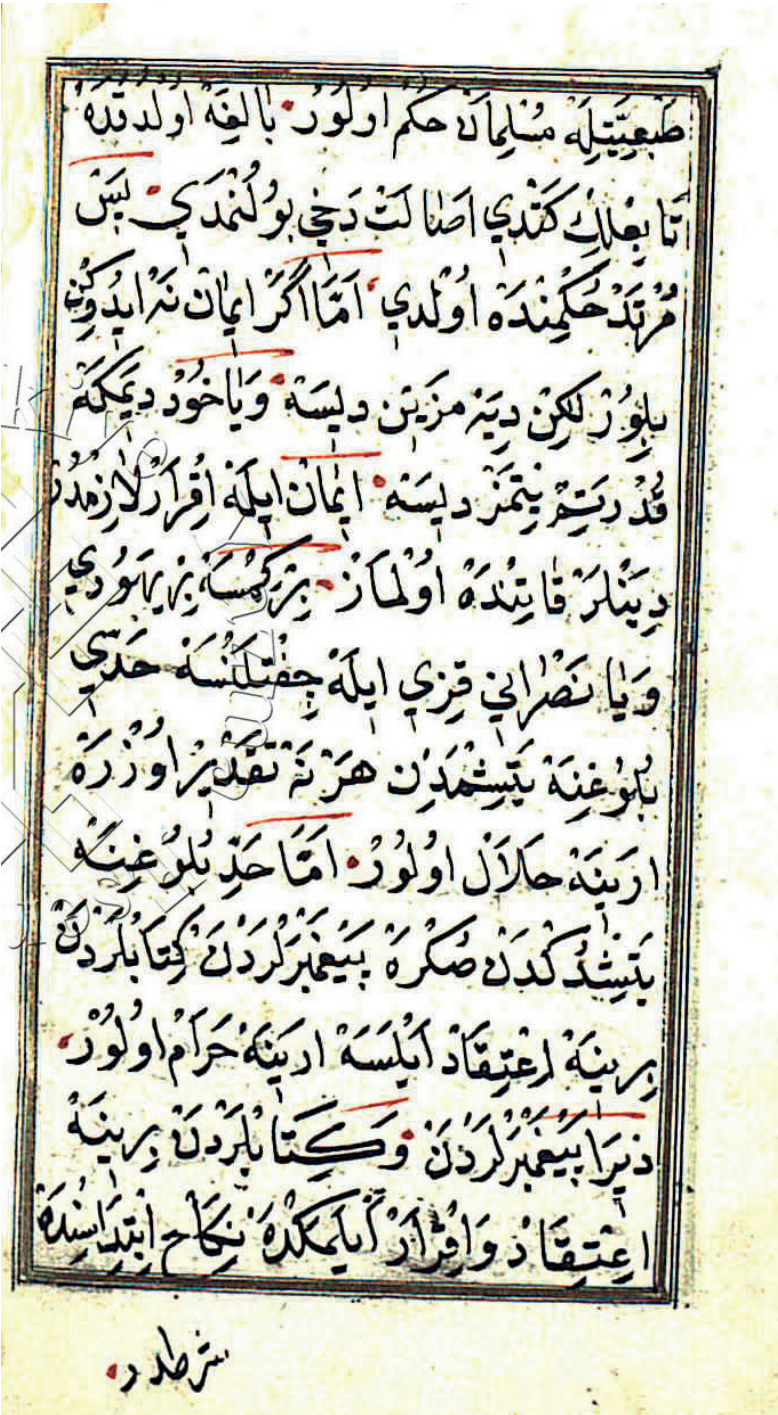 طَبْعِيَّتِلَه مُسْلِمَانْ حُكْمْ اُولُورْ بَالِغَه اُولْدُقْدَه
تَابِعْلِكْ كَتْدِي اَصَالَتْ دَخِي بُولُنْمَدِي پَسْ
مُرْتَدْ حُكْمِنْدَه اُولْدِي اَمَّا اَكَرْ اِيمَانْ نَه اِيدُوكِنْ
بِلُورْ لٰكِنْ دِيَه مَزَيِنْ دِيسَه وَيَا خُودْ دِيمَكَه
قُدْرَتِمْ يِتْمَزْ دِيسَه اِيمَانْ اِيلَه اِقْرَارْ لَازِمْدُرْ
دِيَنْلَرْ قَاتِنْدَه اُولْمَازْ بِرْ كِمْسَه بِرْ يَهُودِي
وَيَا نَصْرَانِي قِزِي اِيلَه جِفْتْلَنْسَه حَدِّي
بُلُوغِنَه يَتِشْمَدِنْ هَرْ نَه تَقْدِيرْ اُوزْرَه
اَرِينَه حَلَالْ اُولُورْ اَمَّا حَدِّ بُلُوغِنَه
يَتِشْدُكْدَنْ صُكْرَه پَيْغَمْبَرْلَرْدَنْ كِتَابْلَرْدَنْ
بِرِينَه اِعْتِقَادْ اَيْلَسَه اَرِينَه حَرَامْ اُولُورْ
زِيرَا پَيْغَمْبَرْلَرْدَنْ وَكِتَابْلَرْدَنْ بِرِينَه
اِعْتِقَادْ وَاِقْرَارْ اَيْلَمَكْدَه نِكَاحْ اِبْتِدَاسِنْدَه
شرطدر